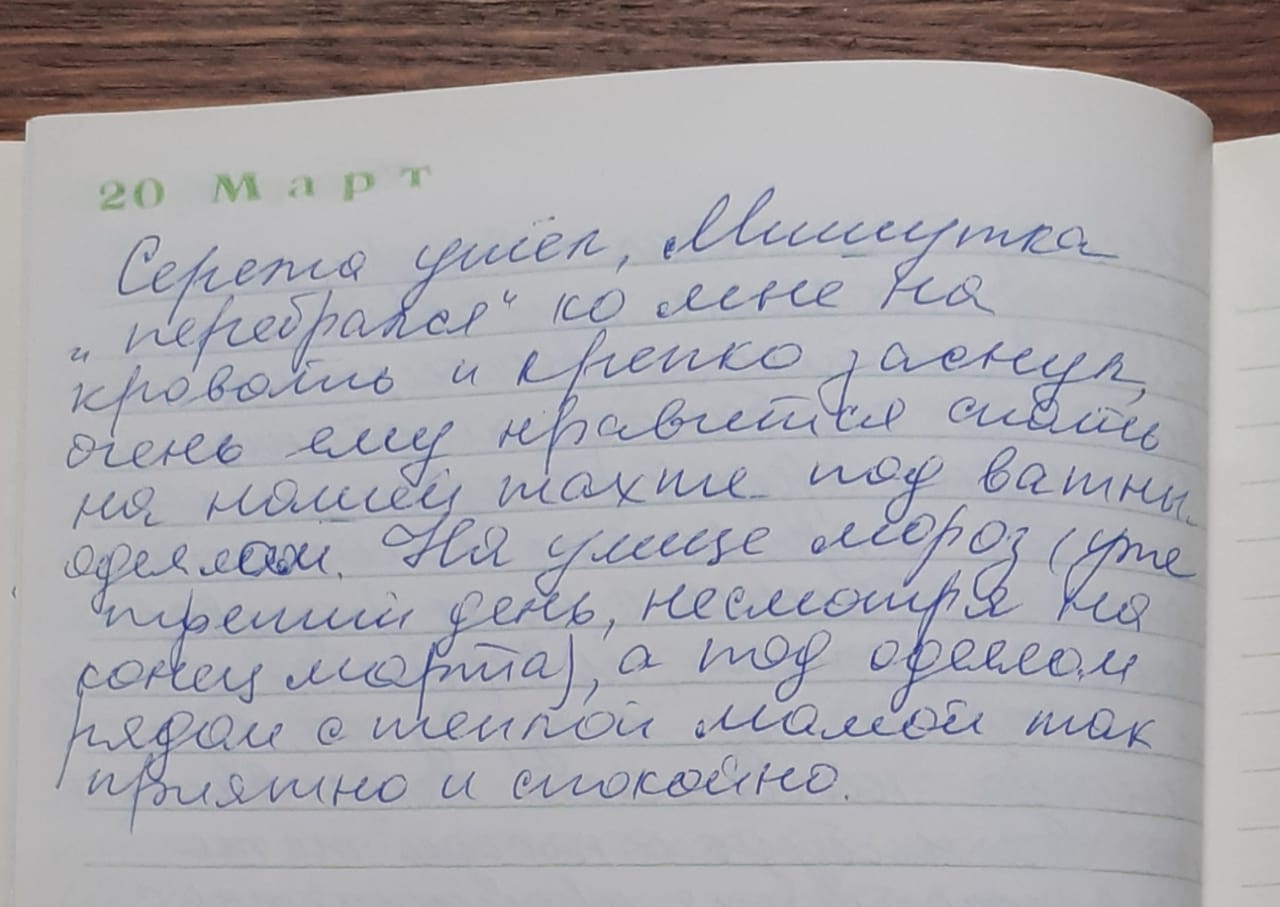 20 Март
Сережа ушёл, Мишутка
„перебрался“ ко мне на
кровать и крепко заснул,
очень ему нравится спать
на нашей тахте под ватны
одеялом. На улице мороз (уже
третий день, несмотря на
конец марта), а под одеялом
рядом с теплой мамой так
приятно и спокойно.